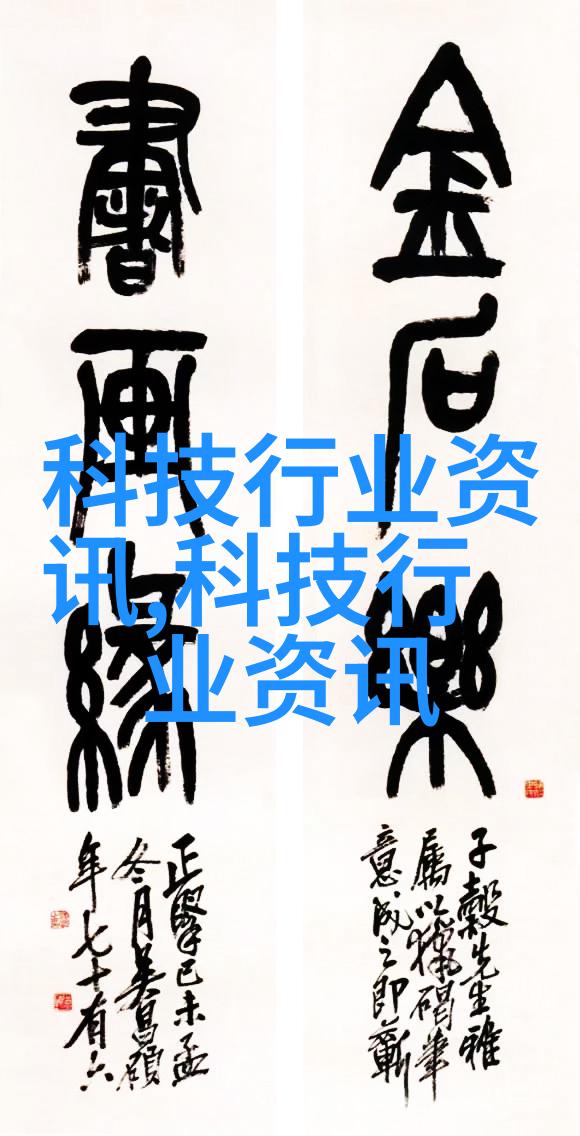 金石樂
書畫緣
子穀先生雅
屬以獵碣筆
意成之即蘄
正擘己未孟
冬月吳昌碩
年七十有六
科技行业资
讯,科技行
业资讯